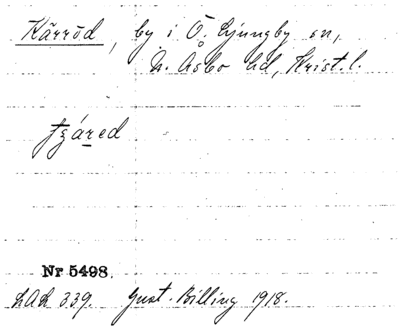 Kärröd, by i Ö. Ljungby sn,
N. Åsbo hd, Krist. l.
Nr 5498.
LAL 339. Gust. Billing 1918.